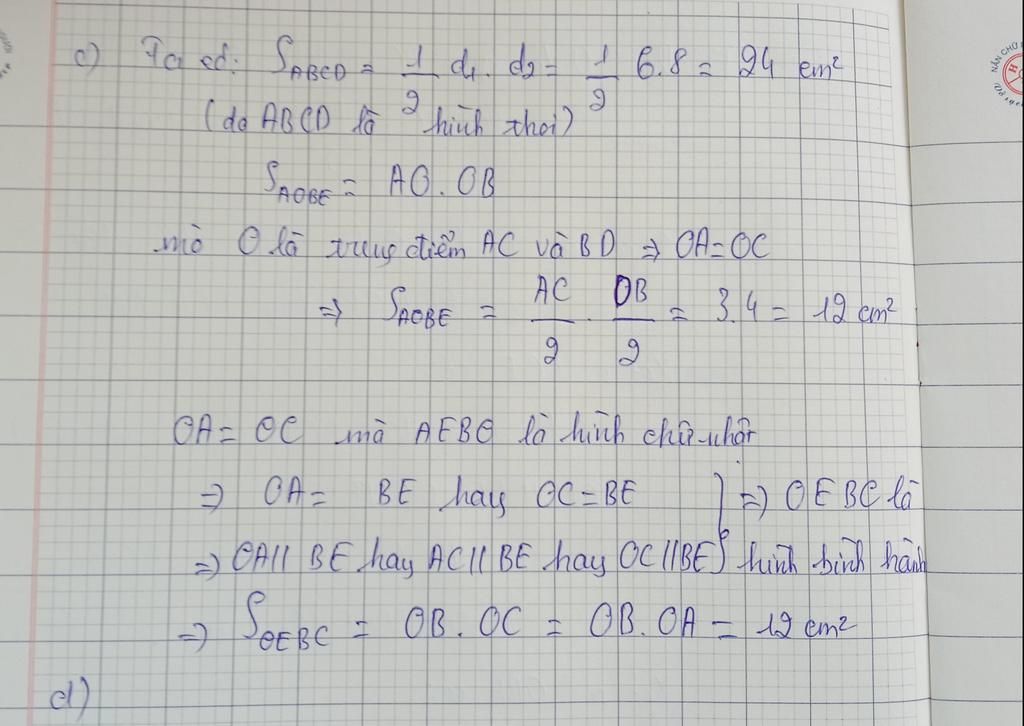 c) Ta có: S_ABCD = 1/2 d1. d2 = 1/2 6.8 = 24 cm²
(do ABCD là hình thoi)
S_AOBE = AO. OB
mà O là trung điểm AC và BD => OA = OC
=> S_AOBE = AC/2 . DB/2 = 3.4 = 12 cm²
OA = OC mà AEBO là hình chữ nhật
=> OA = BE hay OC = BE } => OEBC là
=> OA // BE hay AC // BE hay OC // BE } hình bình hành
=> S_OEBC = OB. OC = OB. OA = 12 cm²
d)